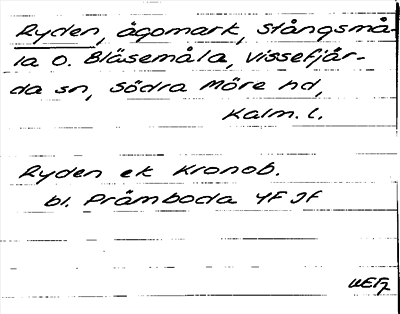 Ryden, ägomark, Stångsmå-
la o. Bläsemåla, Vissefjär-
da sn, Södra Möre hd,
Kalm. l.
Ryden ek Kronob.
bl. Prämboda YF JF